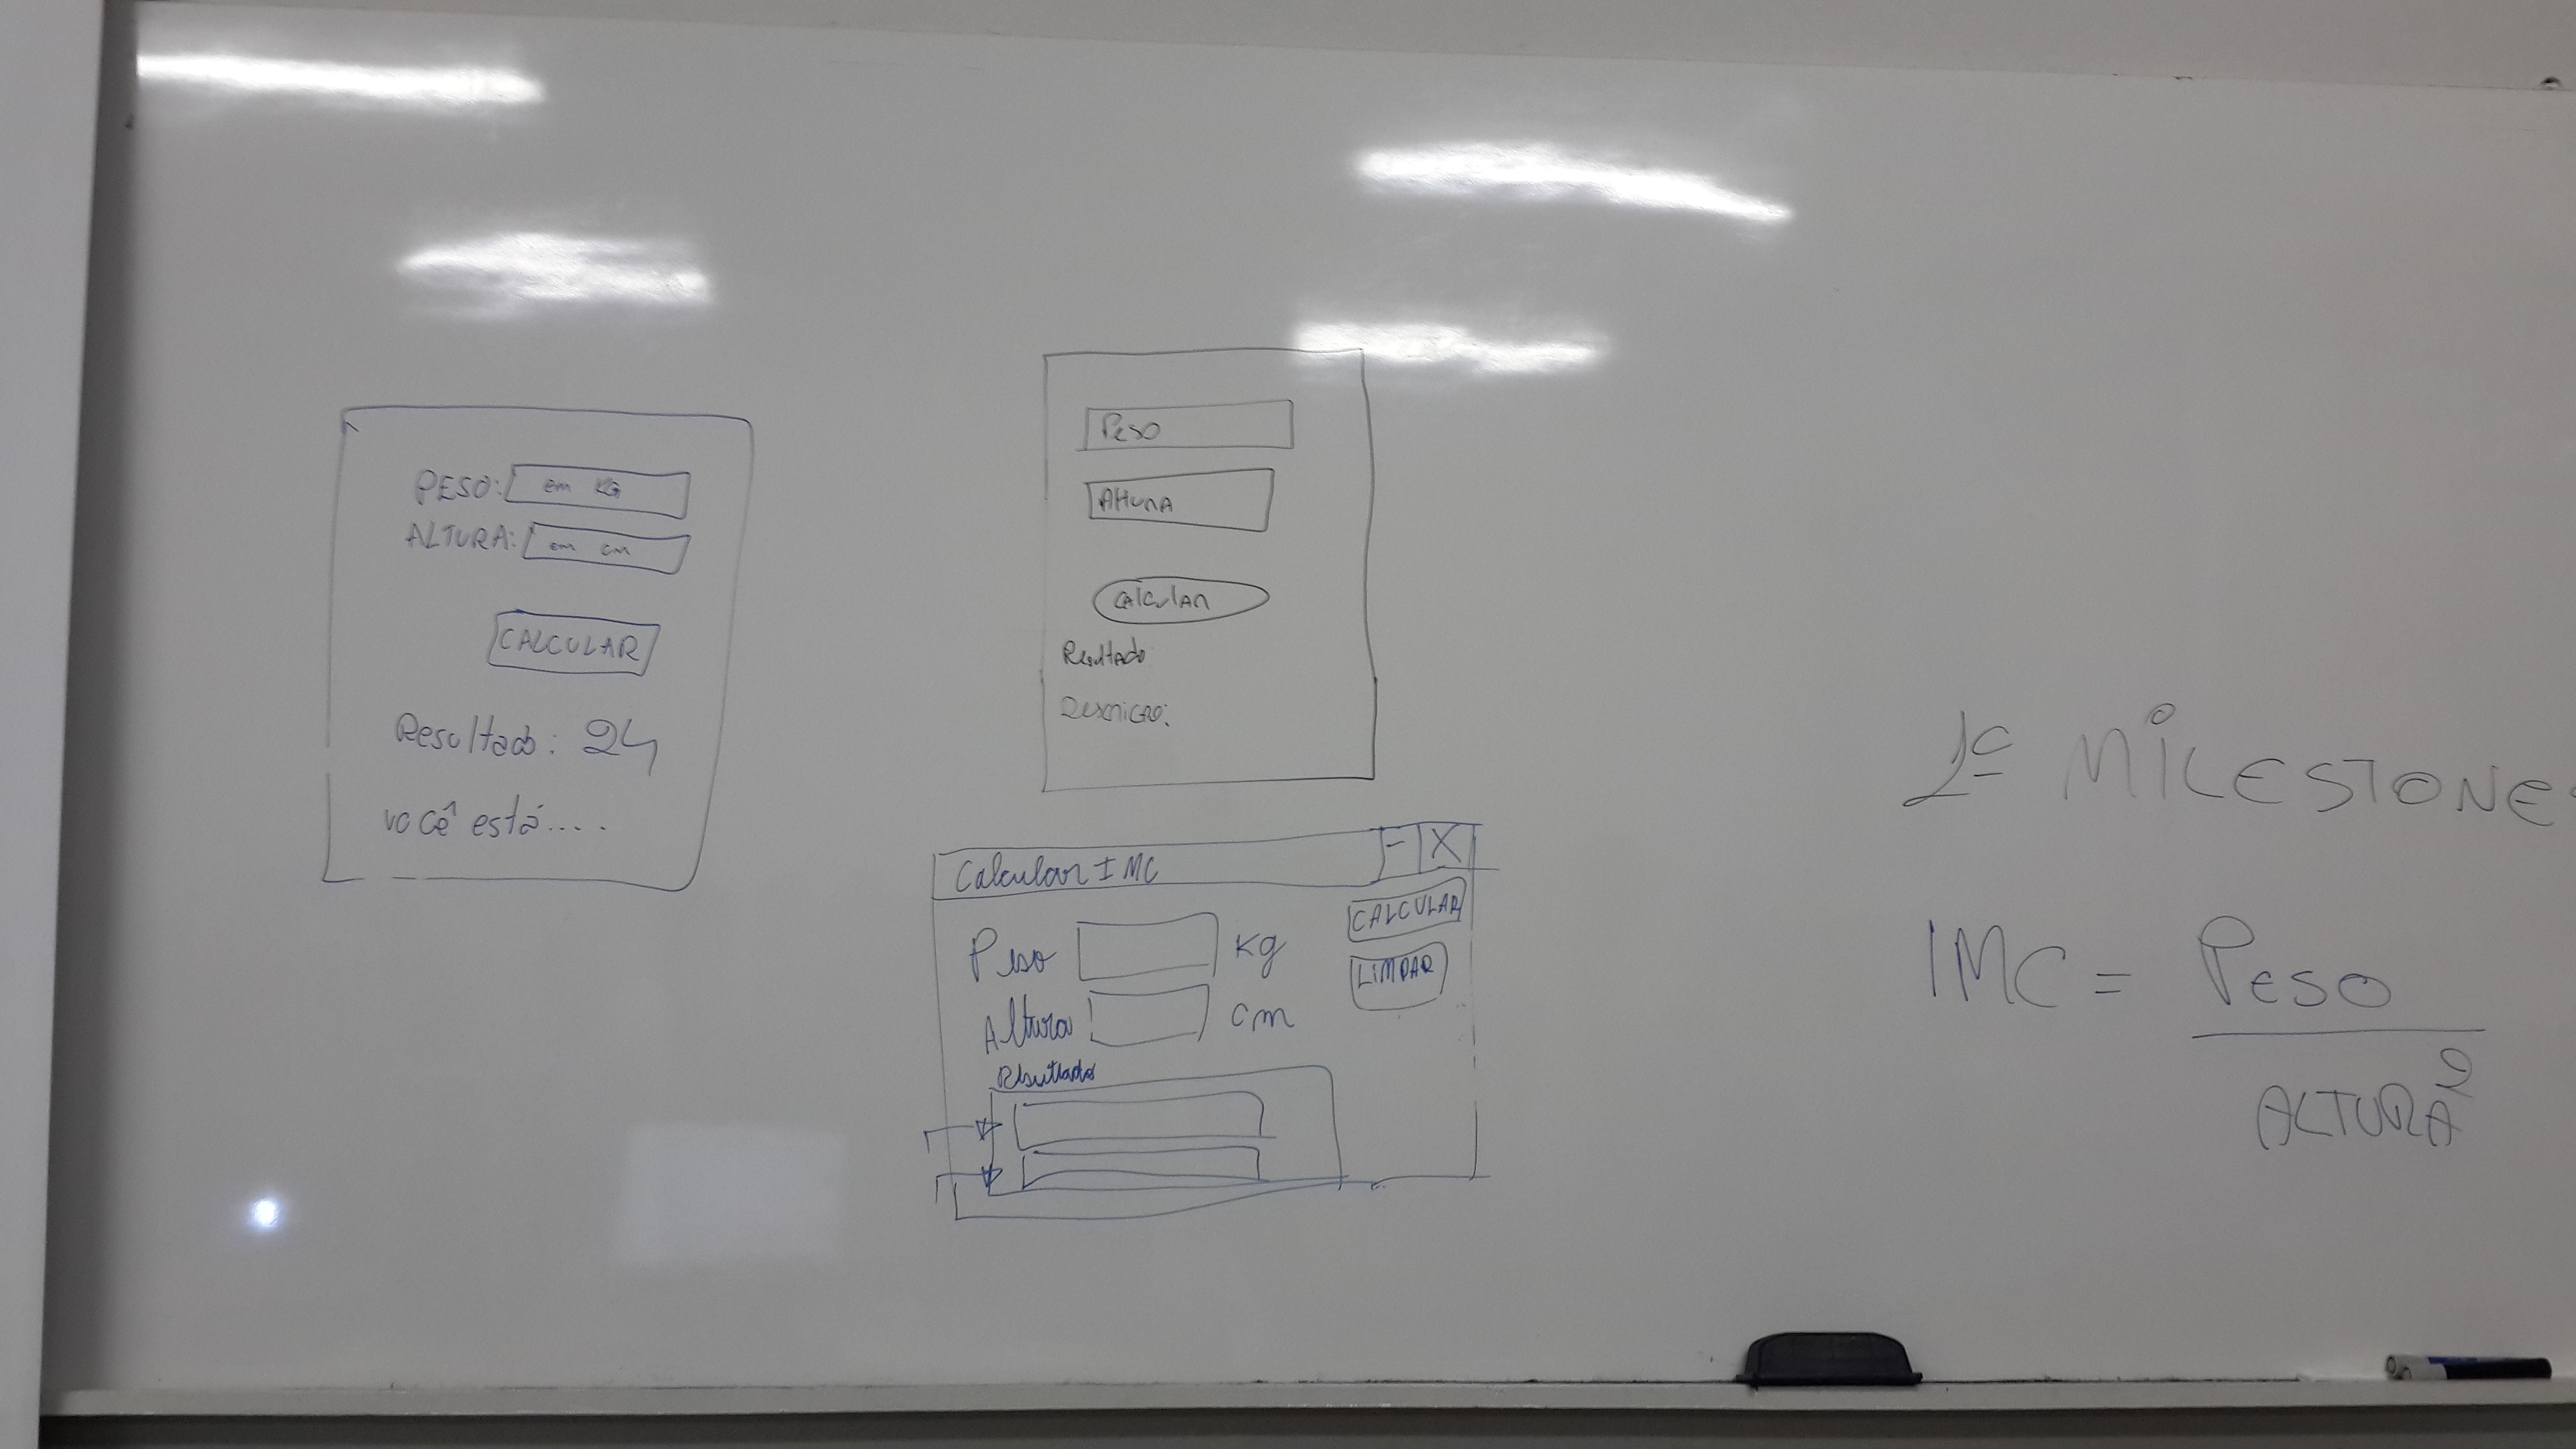 PESO: em KG
ALTURA: em cm
CALCULAR
Resultado: 24
você está....
Peso
Altura
CAlculAR
Resultado
Calcular IMC - X
Peso kg
Altura cm
CALCULAR
LIMPAR
Resultado
1º MILESTONE
IMC = Peso
ALTURA²